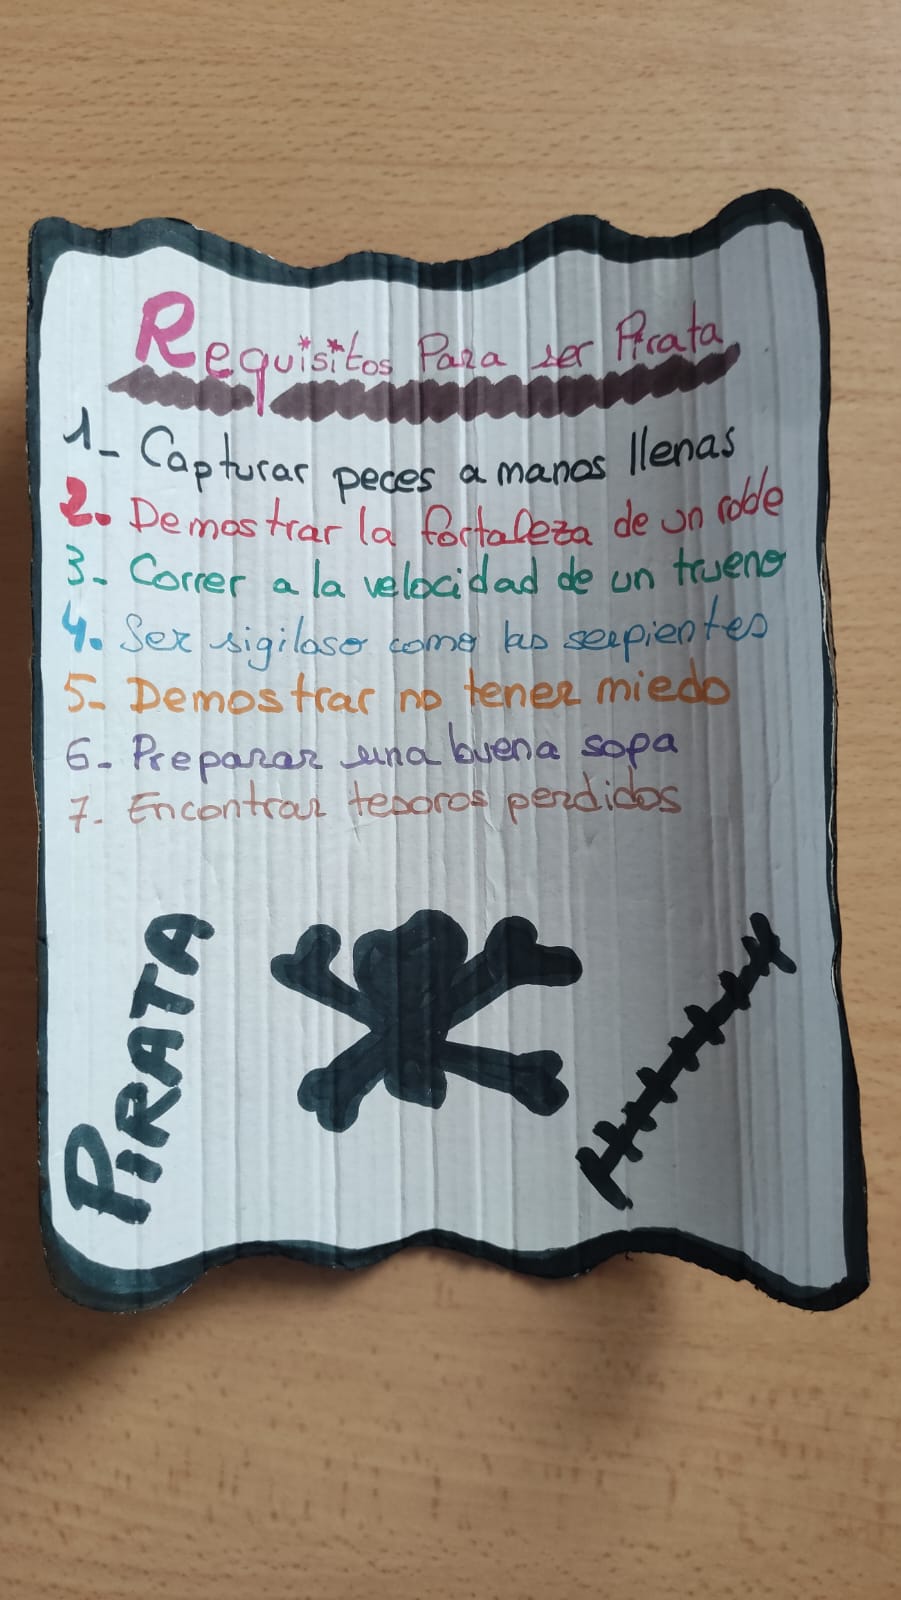 Requisitos Para ser Pirata
1- Capturar peces a manos llenas
2. Demostrar la fortaleza de un roble
3- Correr a la velocidad de un trueno
4. Ser sigiloso como las serpientes
5- Demostrar no tener miedo
6- Preparar una buena sopa
7- Encontrar tesoros perdidos
PIRATA